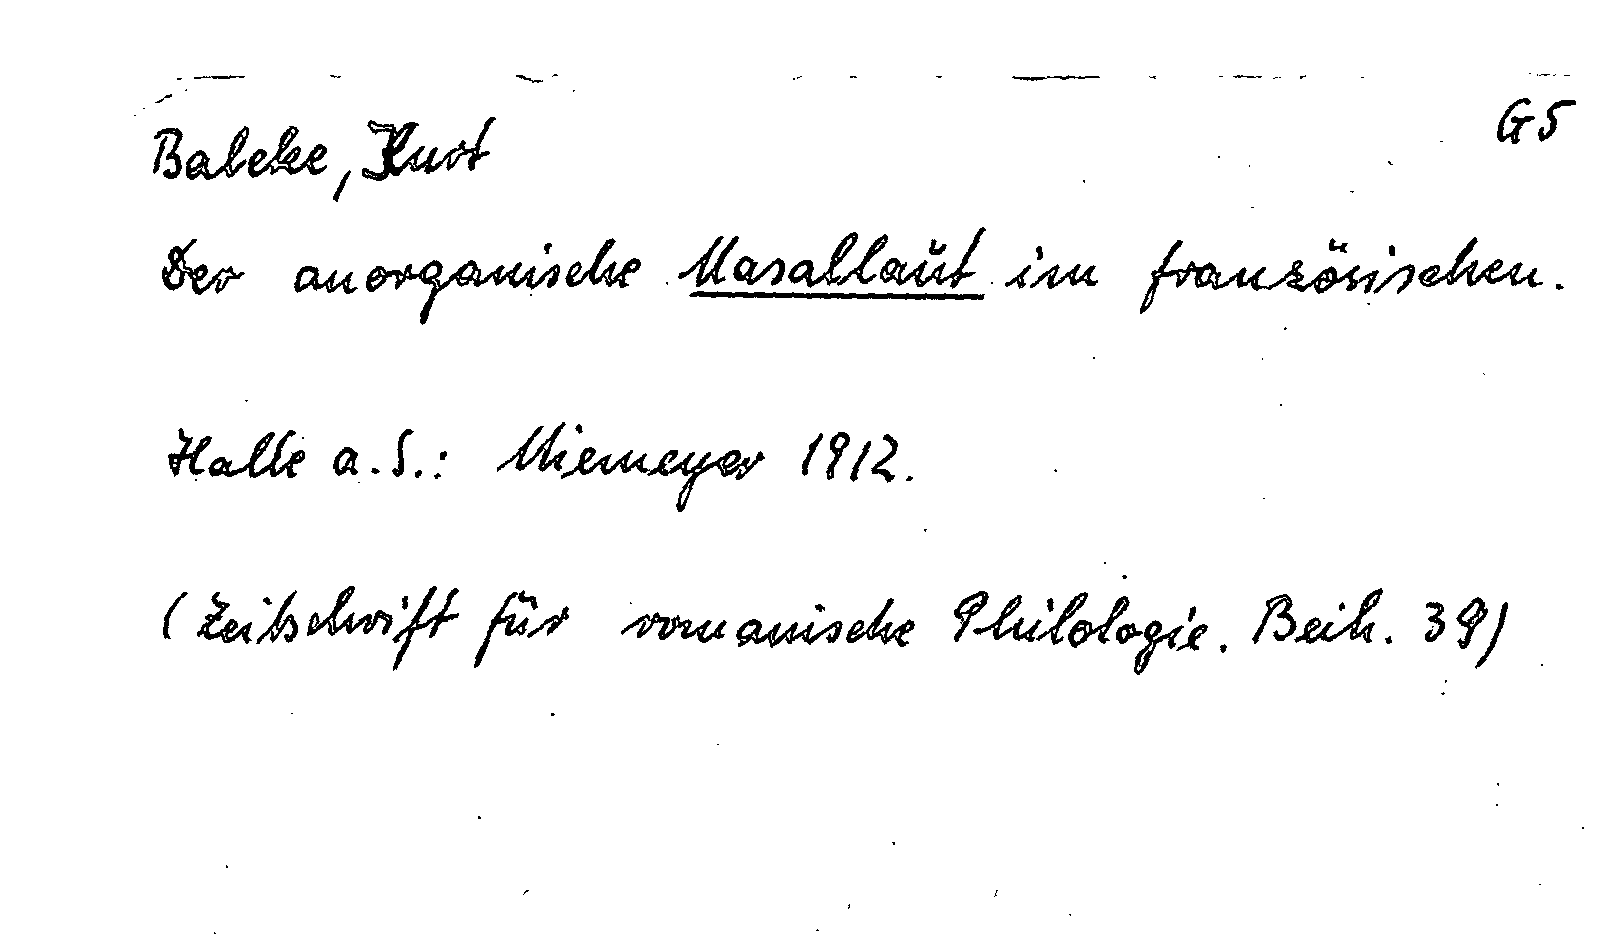 G5
Balcke, Kurt
Der anorganische Nasallaut im französischen.
Halle a.S.: Niemeyer 1912.
(Zeitschrift für romanische Philologie. Beih. 39)